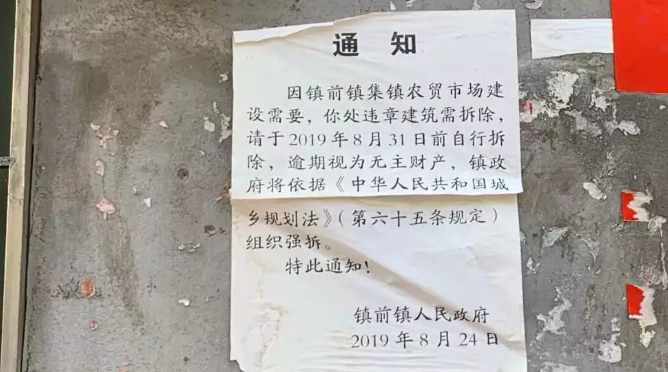 通知
因镇前镇集镇农贸市场建
设需要，你处违章建筑需拆除，
请于2019年8月31日前自行拆
除，逾期视为无主财产，镇政
府将依据《中华人民共和国城
乡规划法》（第六十五条规定）
组织强拆。
特此通知！
镇前镇人民政府
2019年8月24日